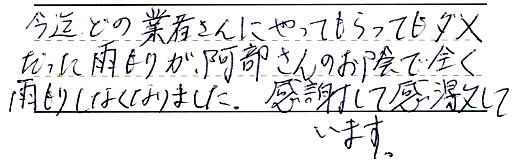 今迄どの業者さんにやってもらってもダメ
だった雨もりが、阿部さんのお陰で全く
雨もりしなくなりました。感謝して感激して
います。